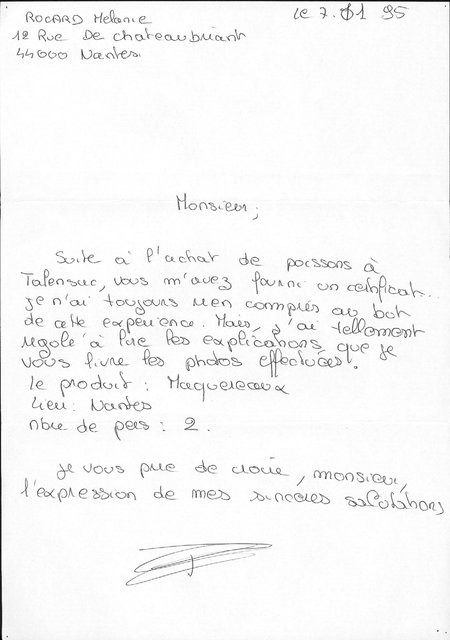 ROCARD Melanie
le 7. 01 95
12 Rue De Chateaubriant
44000 Nantes.
Monsieur,
Suite à l'achat de poissons à
Talensac, vous m'avez fourni un certificat.
je n'ai toujours rien compris au but
de cette expérience. Mais, j'ai tellement
rigolé à lire les explications que je
vous livre les photos effectuées.
le produit : Maquereaux
Lieu : Nantes
nbre de pers : 2.
je vous prie de croire, monsieur,
l'expression de mes sincères salutations